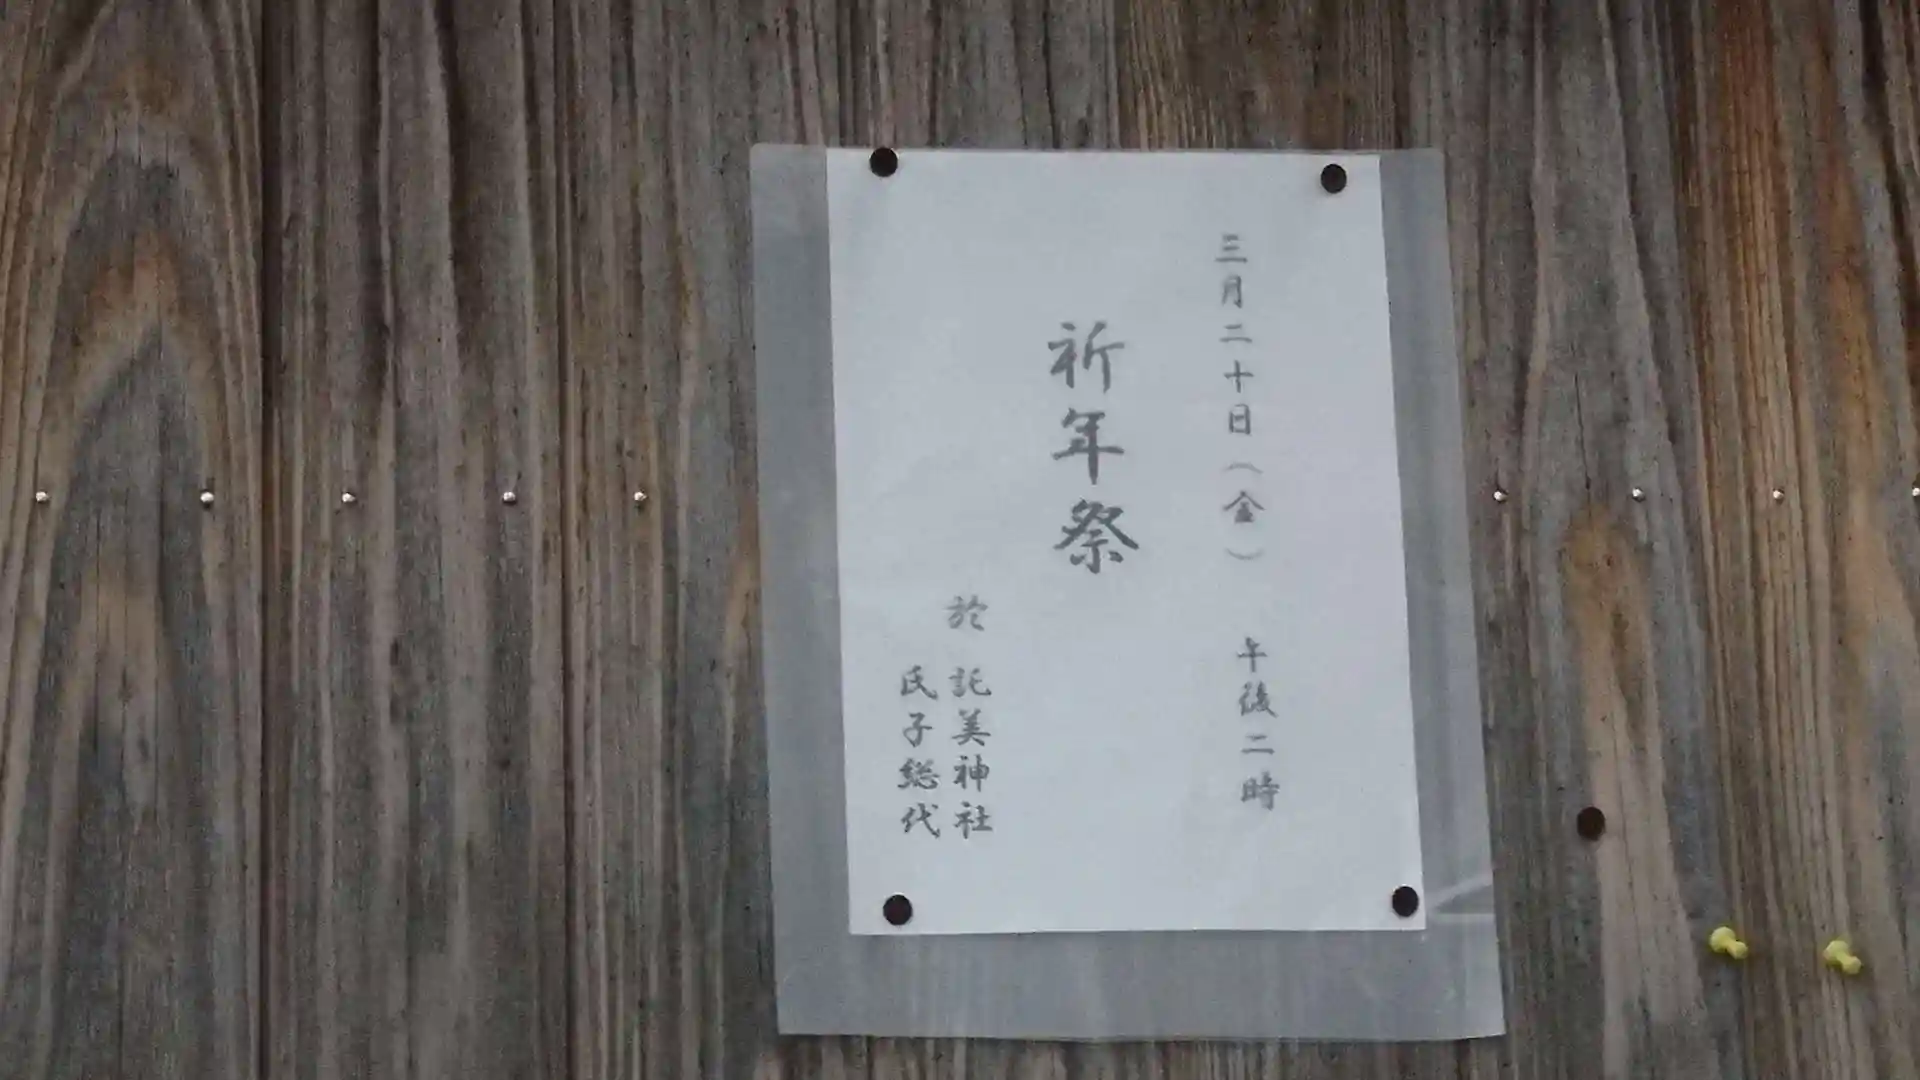 三月二十日（金）　午後二時
祈年祭
於　託美神社
氏子総代